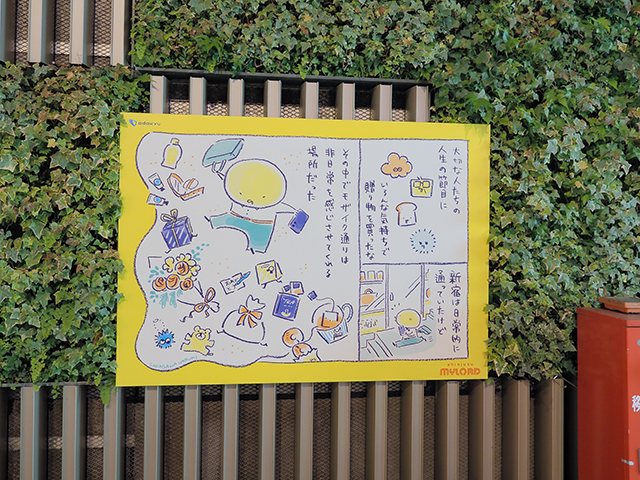 大切な人たちの
人生の節目に
いろんな気持ちで
贈り物を買ったな
新宿は日常的に
通っていたけど
その中でモザイク通りは
非日常を感じさせてくれる
場所だった
SHINJUKU
MYLORD